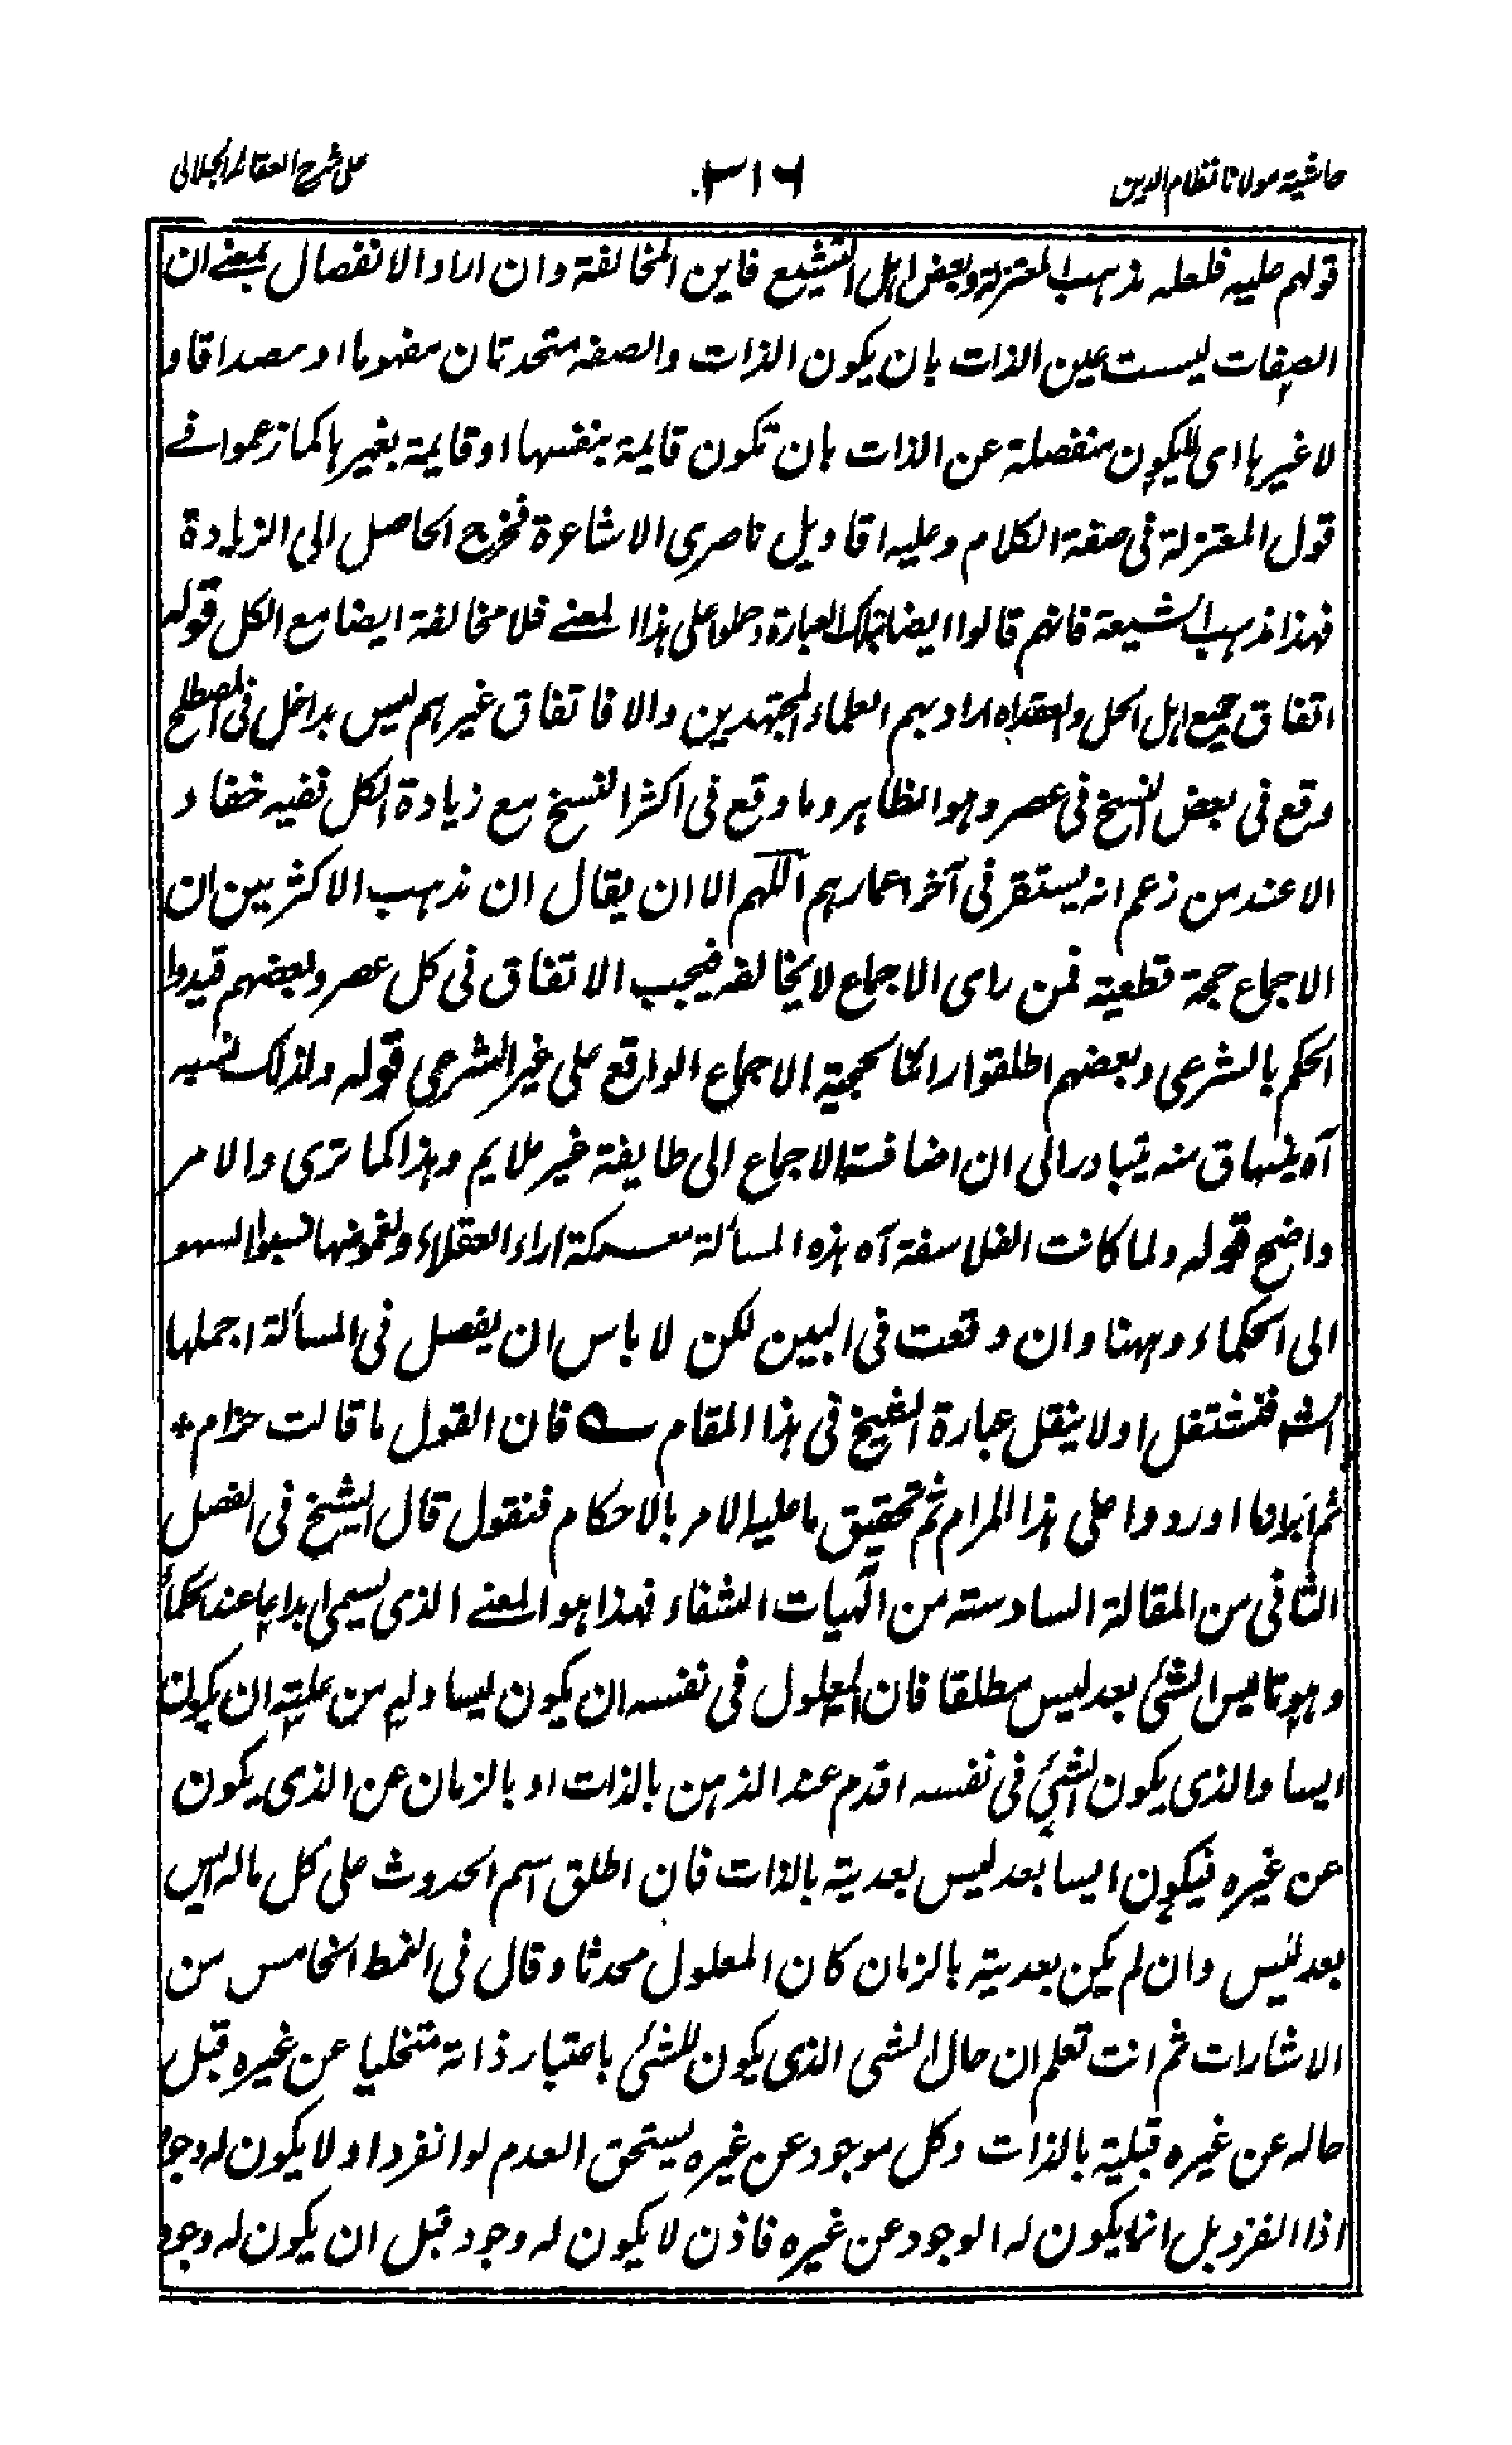 حاشیة مولانا نظام الدین
٣١٦
علی شرح العقائد الجلالی
قولهم علیه فلعله مذهب المعتزلة وبعض اهل التشیع فاین المخالفة وان اراد الانفصال بمعنے ان
الصفات لیست عین الذات بان یکون الذات والصفه متحدتان مفهوما او مصداقا و
لا غیرها ای لا یکون منفصلة عن الذات بان تکون قایمة بنفسها او قایمة بغیرها کما زعموا فے
قول المعتزلة فی صفة الکلام وعلیه اقاویل ناصری الاشاعرة فخرج الحاصل الی الزیادة
فهذا مذهب الشیعة فانهم قالوا ایضا بتلک العبارة وحملوا علی هذا المعنے فلا مخالفة ایضا مع الکل قوله
اتفاق جمیع اهل الحل والعقد اه اراد بهم العلماء المجتهدین والا فاتفاق غیرهم لیس بداخل فی المصطلح
وقع فی بعض النسخ فی عصر وهو الظاهر وما وقع فی اکثر النسخ مع زیادة الکل ففیه خفاء
الا عند من زعم انه یستقر فی آخر اعمارهم اللهم الا ان یقال ان مذهب الاکثرین ان
الاجماع حجة قطعیة فمن رای الاجماع لا یخالفه فیجب الاتفاق فی کل عصر وبعضهم قیدوا
الحکم بالشرعی وبعضهم اطلقوا رائما لحجیة الاجماع الواقع علی غیر الشرعی قوله ولذلک نسبه
آه ینساق منه یتبادر الی ان اضافة الاجماع الی طایفة غیر ملایم وهذا کما تری والامر
واضح قوله ولما کانت الفلاسفة آه هذه المسألة معسرکة اراء العقلاء ولغموضها نسبوا السهو
الی الحکماء وههنا وان وقعت فی البین لکن لا باس ان یفصل فی المسألة اجملها
الشه فنشتغل اولا بنقل عبارة الشیخ فی هذا المقام ع فان القول ما قالت حزام+
ثم ایراد ما اوردوا علی هذا المرام ثم تحقیق ما علیه الامر بالاحکام فنقول قال الشیخ فی الفصل
الثانی من المقالة السادسته من الٓهیات الشفاء فهذا هو المعنے الذی یسمی ابداعا عند الحکماء
وهو تاییس الشئی بعد لیس مطلقا فان المعلول فی نفسه ان یکون لیسا وله من علیته ان یکون
ایسا والذی یکون للشئی فی نفسه اقدم عند الذهن بالذات او بالزمان عن الذی یکون
عن غیره فیکون ایسا بعد لیس بعدیته بالذات فان اطلق اسم الحدوث علی کل ماله ایس
بعد لیس وان لم یکن بعدیته بالزمان کان المعلول محدثا وقال فی النمط الخامس من
الاشارات ثم انت تعلم ان حال الشی الذی یکون للشئی باعتبار ذاته متخلیا عن غیره قبل
حاله عن غیره قبلیة بالذات وکل موجود عن غیره یستحق العدم لو انفرد او لا یکون له وجود
اذا انفرد بل انما یکون له الوجود عن غیره فاذن لا یکون له وجود قبل ان یکون له وجود